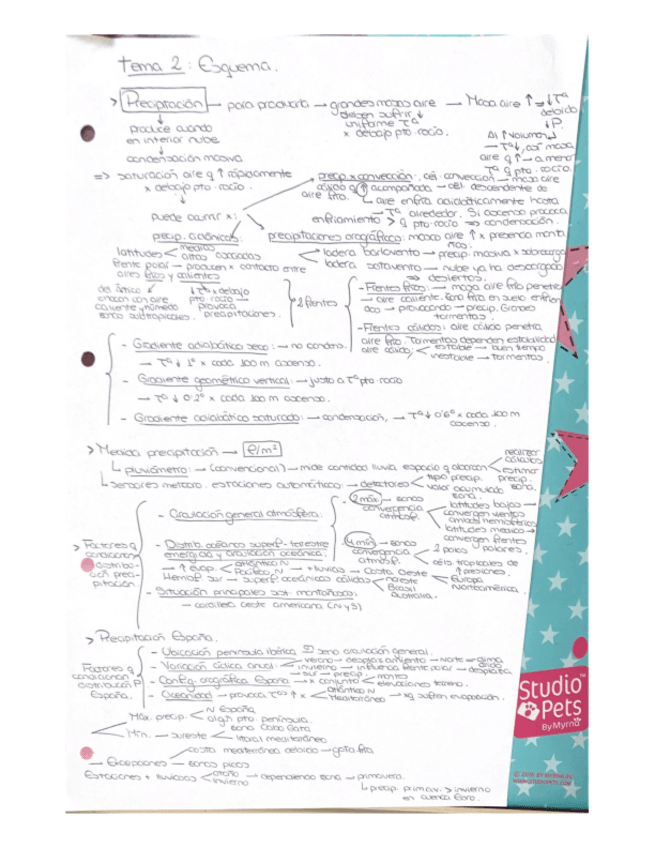 Tema 2: Esquema.
> Precipitación → para producirla → grandes masas aire → Masa aire ↑ ⇒ ↓Tª
deben sufrir ↓ debido
uniforme Tª ↓P.
x debajo pto. rocío.
produce cuando
en interior nube
condensación masiva
Al ↑ volumen ↓
→ Tª↓, así masa
aire q ↑ → a menor
Tª q pto. rocío.
=> saturación aire q ↑ rápidamente
x debajo pto. rocío.
precip. x convección: cél. convección → masa aire
cálido q ↑ acompañada → cél. descendente de
aire frío.
aire enfría adiabáticamente hasta
→ Tª alrededor. Si ascenso provoca
enfriamiento > q pto. rocío => condensación.
puede ocurrir x:
precip. ciclónicas: precipitaciones orográficas: masa aire ↑ x presencia monta
ñas.
latitudes < medias
altas asociadas
frente polar → producen x contacto entre
aires fríos y calientes
ladera barlovento → precip. masiva x sobrecarga
ladera sotavento → nube ya ha descargado
=> desiertos.
de ártico
chocan con aire
caliente y húmedo
zonas subtropicales.
↓Tª x debajo
pto. rocío →
provoca
precipitaciones.
2 frentes
- Frentes fríos: → masa aire frío penetra
→ aire caliente.
→ provocando → precip. Grandes
tormentas.
- Frentes cálidos: aire cálido penetra
aire frío. Tormentas dependen estabilidad
aire cálido: < estable → buen tiempo
inestable → tormentas.
- Gradiente adiabático seco: → no condens.
→ Tª ↓ 1º x cada 100 m ascenso.
- Gradiente geométrico vertical: → justo a Tª pto. rocío
→ Tª ↓ 0'2º x cada 100 m ascenso.
- Gradiente adiabático saturado: → condensación, → Tª ↓ 0'6º x cada 100 m
ascenso.
> Medida precipitación → ℓ/m²
↳ pluviómetro: → (convencional) → mide cantidad lluvia espacio q abarcan < realizar
cálculos
estimar
precip.
↳ sensores meteoro. estaciones automáticas: → detectores < tipo precip.
valor acumulado
zona.
> Factores q
condicionan
distribu-
ción preci-
pitación.
- Circulación general atmósfera:
- 2 máx → zonas
convergencia
atmósf.
latitudes bajas →
convergen vientos
ambos hemisferios
latitudes medias →
convergen frentes
polares.
- Distrib. océanos superf. terrestre
emergida y circulación oceánica:
- 4 mín → zonas
convergencia
atmósf.
2 polos
céls. tropicales de
↑ presiones.
→ ↑ evap. < Atlántico N
Pacífico N → + lluvias → Costa Oeste < Europa
Norteamérica.
Hemisf. sur → superf. oceánicas cálidas < noreste
Brasil
Australia.
- Situación principales sist. montañosos:
→ cordillera oeste americana (N y S)
> Precipitación España.
Factores q
condicionan
distribución P
España.
- Ubicación península ibérica seno circulación general.
- Variación cíclica anual: < verano → desplazamiento → Norte = clima
árido
invierno → influencia frente polar → despierta
sur → precip.
- Config. orográfica España → x conjunto < montes
elevaciones terreno.
- Oceanidad → provoca Tªs ↑ x < Atlántico N
Mediterráneo → xq sufren evaporación.
Máx. precip. < N España
algn pto. península.
Mín. → sureste < zona Cabo Gata
litoral mediterráneo
→ Excepciones → zonas picos
costa mediterránea debido → gota fría
Estaciones + lluviosas < otoño
invierno → dependiendo zona → primavera.
↳ precip. primav. > invierno
en cuenca Ebro.
Studio
Pets
By Myrna
© 2018 BY MYRNA BV
WWW.STUDIOPETS.COM